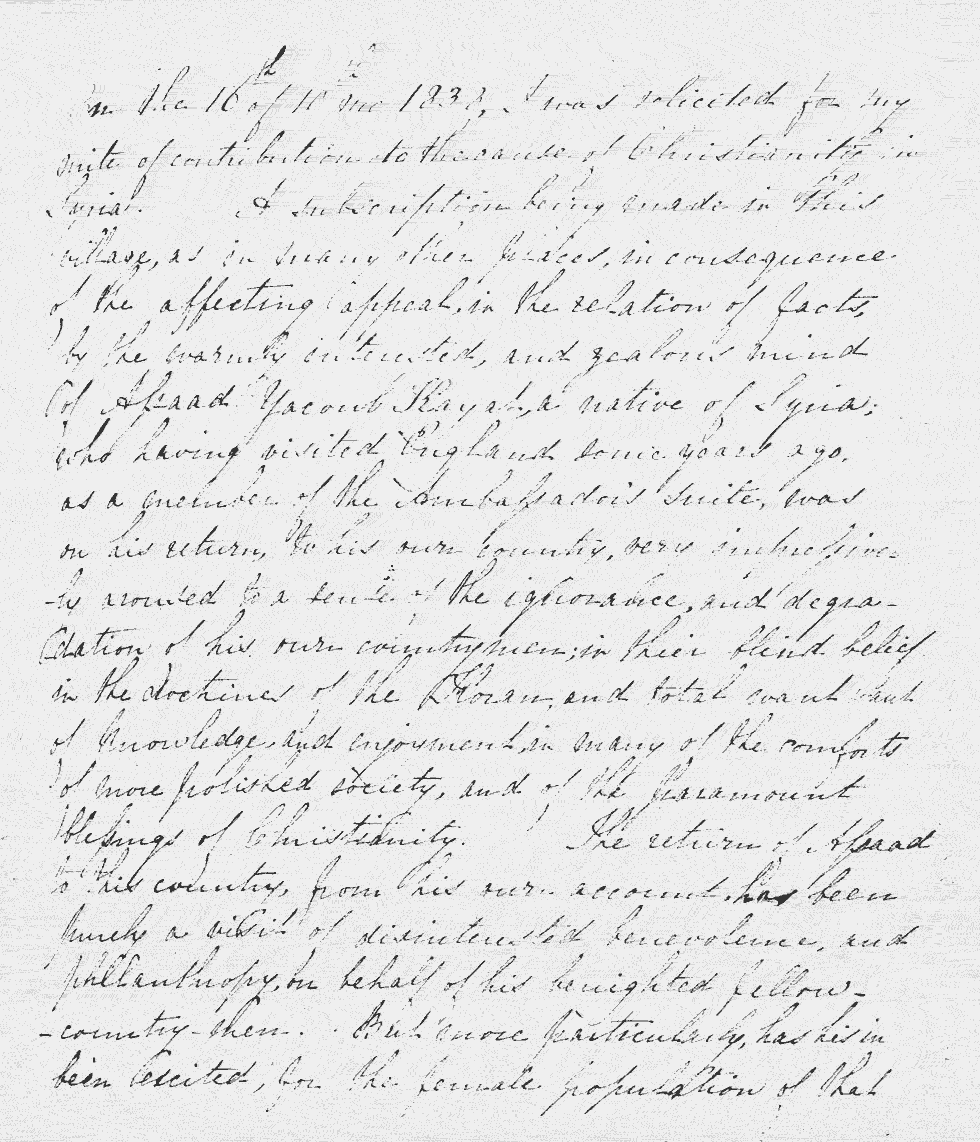 In the 16th of 10th mo 1838, I was solicited for my
mite of contribution to the cause of Christianity in
Syria. A subscription being made in this
village, as in many other places, in consequence
of the affecting appeal, in the relation of facts,
by the warmly interested, and zealous mind
of Assaad Yacoub Kayat, a native of Syria;
who having visited England some years ago,
as a member of the Ambassador's suite, was
on his return, to his own country, very impressive-
-ly aroused to a sense of the ignorance, and degra-
dation of his own countrymen; in their blind belief
in the doctrines of the Koran, and total want want
of knowledge, and enjoyment, in many of the comforts
of more polished society, and of the paramount
blessings of Christianity. The return of Assaad
to this country, from his own account, has been
purely a visit of disinterested benevolence, and
philanthropy, on behalf of his benighted fellow-
-country-men. But more particularly, has his in
been excited, for the female population of that